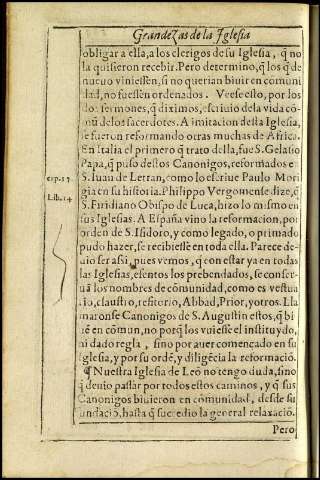 Grandezas de la Iglesia
obligar a ella, a los clerigos de su Iglesia, q̃ no
la quisieron recebir. Pero determino, q̃ los q̃ de
nueuo viniessen, si no querian biuir en comuni
dad, no fuessen ordenados. Veese esto, por los
dos sermones, q̃ diximos, escriuio de la vida co-
mũ de los sacerdotes. A imitacion desta Iglesia,
se fueron reformando otras muchas de Africa.
En Italia el primero q̃ trato della, fue S. Gelasio
Papa, q̃ puso destos Canonigos, reformados en
S. Iuan de Letran, como lo escriue Paulo Mori
cap. 17.
gia en su historia. Philippo Vergomense dize, q̃
Lib. 14
S. Fridiano Obispo de Luca, hizo lo mismo en
sus Iglesias. A España vino la reformacion, por
orden de S. Isidoro, y como legado, o primado,
pudo hazer, se recibiesse en toda ella. Parece de-
uio ser assi, pues vemos, q̃ con estar ya en todas
las Iglesias, esentos los prebendados, se conser-
uã los nombres de cõmunidad, como es vestua
rio, claustro, refitorio, Abbad, Prior, y otros. Lla
maronse Canonigos de S. Augustin estos, q̃ bi
uiẽ en cõmun, no porq̃ los vuiesse el instituydo,
ni dado regla, sino por auer començado en su
Iglesia, y por su ordẽ, y diligẽcia la reformació.
¶ Nuestra Iglesia de Leõ no tengo duda, sino
q̃ deuio passar por todos estos caminos, y q̃ sus
Canonigos biuieron en cõmunidad, desde su
fundació, hasta q̃ sucedio la general relaxació.
Pero